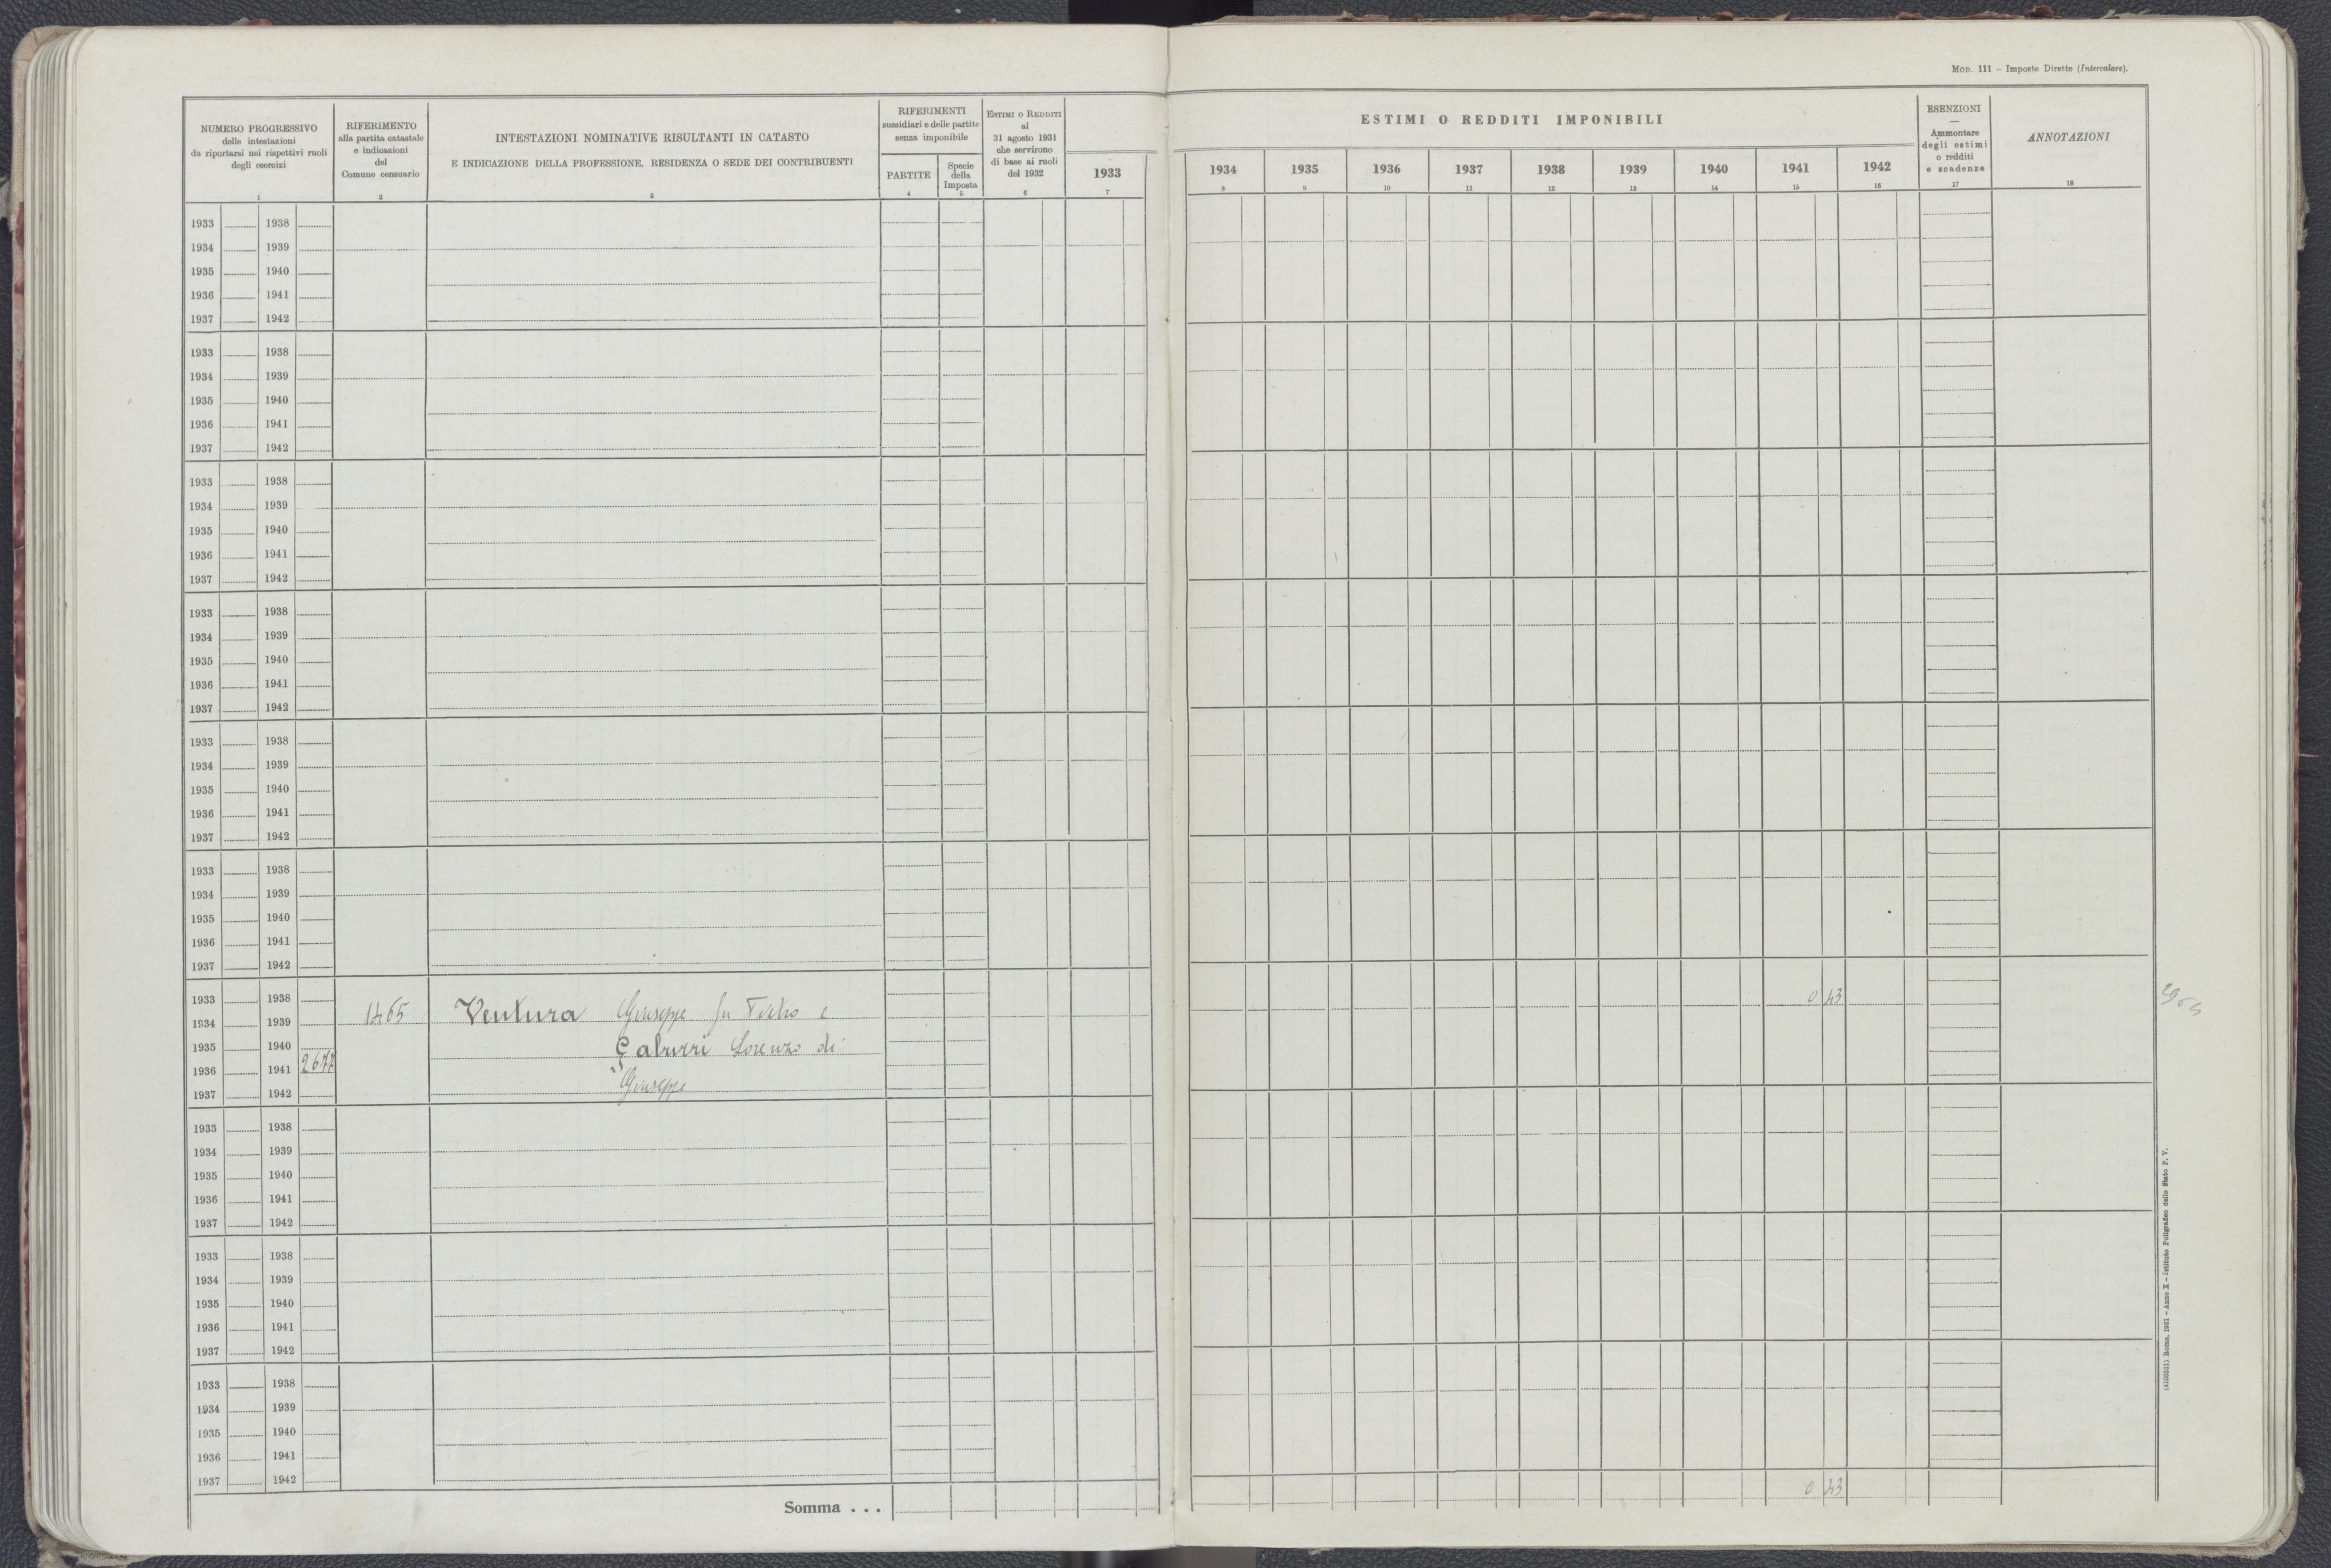 MOD. 111 – Imposte Dirette (Intercalare).
NUMERO PROGRESSIVO
delle intestazioni
da riportarsi nei rispettivi ruoli
degli esercizi
1
RIFERIMENTO
alla partita catastale
e indicazioni
del
Comune censuario
2
INTESTAZIONI NOMINATIVE RISULTANTI IN CATASTO
E INDICAZIONE DELLA PROFESSIONE, RESIDENZA O SEDE DEI CONTRIBUENTI
3
RIFERIMENTI
sussidiari e delle partite
senza imponibile
PARTITE
4
Specie
della
Imposta
5
ESTIMI O REDDITI
al
31 agosto 1931
che servirono
di base ai ruoli
del 1932
6
1933
7
ESTIMI O REDDITI IMPONIBILI
1934 1935 1936 1937 1938 1939 1940 1941 1942
8 9 10 11 12 13 14 15 16
ESENZIONI
—
Ammontare
degli estimi
o redditi
e scadenze
17
ANNOTAZIONI
18
1933 1938
1934 1939
1935 1940
1936 1941
1937 1942
1933 1938
1934 1939
1935 1940
1936 1941
1937 1942
1933 1938
1934 1939
1935 1940
1936 1941
1937 1942
1933 1938
1934 1939
1935 1940
1936 1941
1937 1942
1933 1938
1934 1939
1935 1940
1936 1941
1937 1942
1933 1938
1934 1939
1935 1940
1936 1941
1937 1942
1933 1938 0 43
1934 1939 1465 Ventura Giuseppe fu e
1935 1940 Lorenzo di
1936 1941 2677
1937 1942 Giuseppe
1933 1938
1934 1939
1935 1940
1936 1941
1937 1942
1933 1938
1934 1939
1935 1940
1936 1941
1937 1942
1933 1938
1934 1939
1935 1940
1936 1941
1937 1942
Somma . . . 0 43
(4100531) Roma, 1931 – Anno X – Istituto Poligrafico dello Stato P. V.